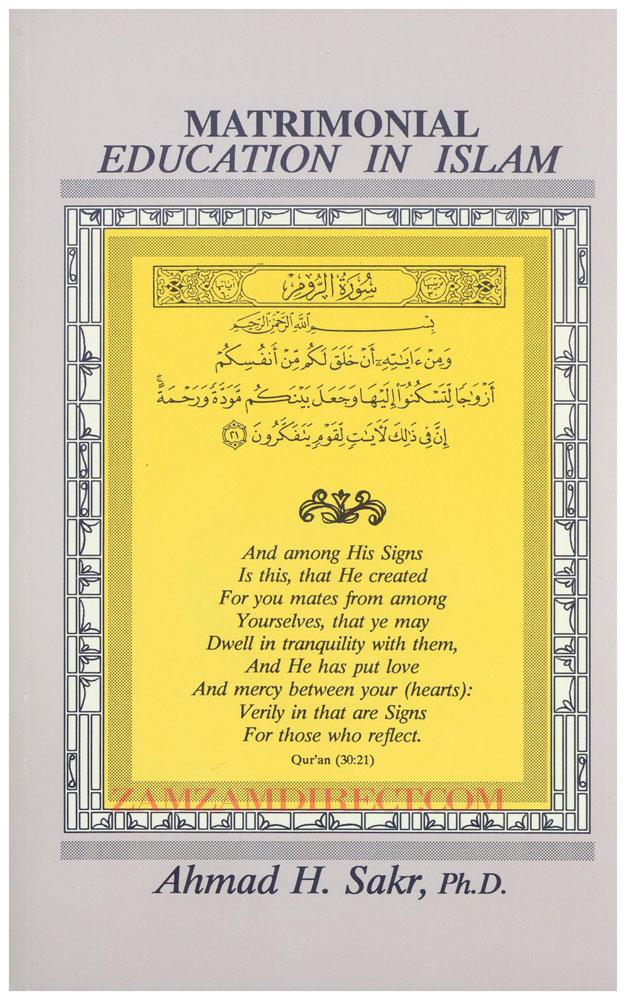 MATRIMONIAL
EDUCATION IN ISLAM
سُورَةُ الرُّومِ
بِسْمِ اللَّهِ الرَّحْمَٰنِ الرَّحِيمِ
وَمِنْ ءَايَٰتِهِۦٓ أَنْ خَلَقَ لَكُم مِّنْ أَنفُسِكُمْ
أَزْوَٰجًا لِّتَسْكُنُوٓا۟ إِلَيْهَا وَجَعَلَ بَيْنَكُم مَّوَدَّةً وَرَحْمَةً ۚ
إِنَّ فِى ذَٰلِكَ لَءَايَٰتٍ لِّقَوْمٍ يَتَفَكَّرُونَ ٢١
And among His Signs
Is this, that He created
For you mates from among
Yourselves, that ye may
Dwell in tranquility with them,
And He has put love
And mercy between your (hearts):
Verily in that are Signs
For those who reflect.
Qur'an (30:21)
ZAMZAMDIRECT.COM
Ahmad H. Sakr, Ph.D.